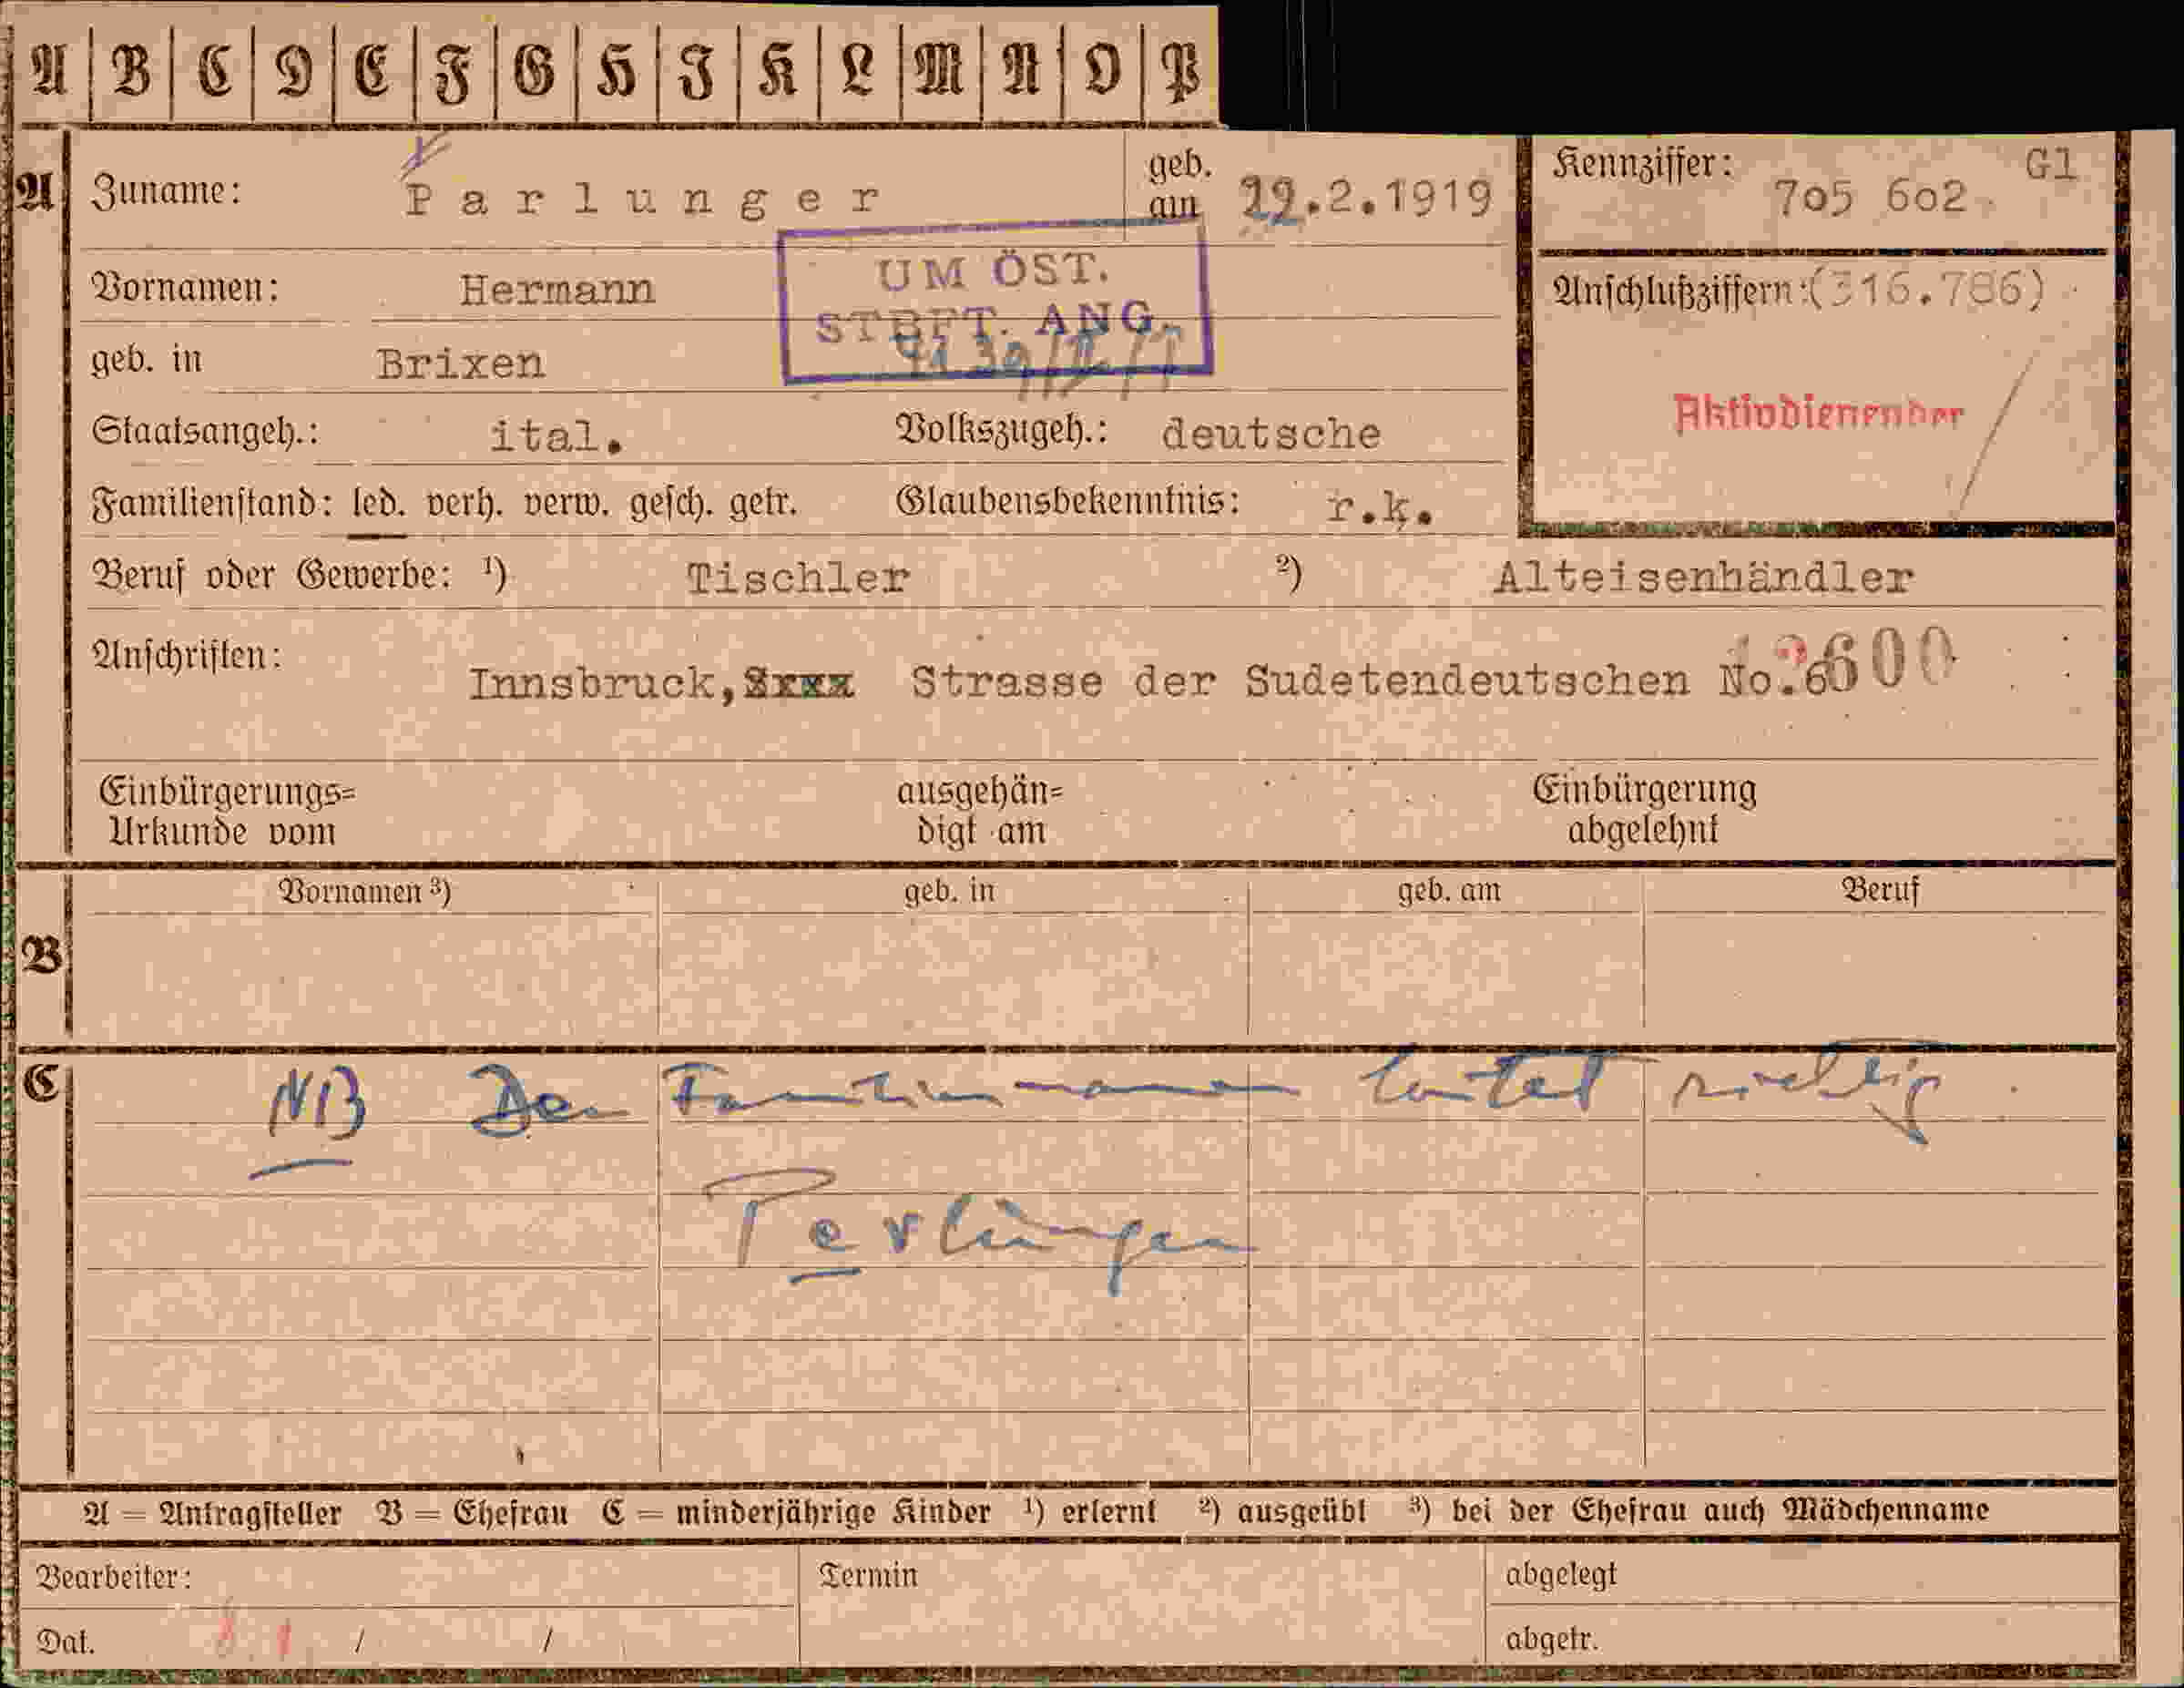 A B C D E F G H J K L M N O P
A Zuname: Parlunger geb. am .2.1919 Kennziffer: 705 602 Gl
UM ÖST.
STBFT. ANG.
Vornamen: Hermann Anschlußziffern: (316.786)
geb. in Brixen
Aktivdienender
Staatsangeh.: ital. Volkszugeh.: deutsche
Familienstand: led. verh. verw. gesch. getr. Glaubensbekenntnis: r.k.
Beruf oder Gewerbe: ¹) Tischler ²) Alteisenhändler
Anschriften: Innsbruck, Strasse der Sudetendeutschen No.
Einbürgerungs= ausgehän= Einbürgerung
Urkunde vom digt am abgelehnt
Vornamen ³) geb. in geb. am Beruf
B
C NB Der Familienname lautet richtig
Perlunger
A = Antragsteller B = Ehefrau C = minderjährige Kinder ¹) erlernt ²) ausgeübt ³) bei der Ehefrau auch Mädchenname
Bearbeiter: Termin abgelegt
Dat. / / abgetr.